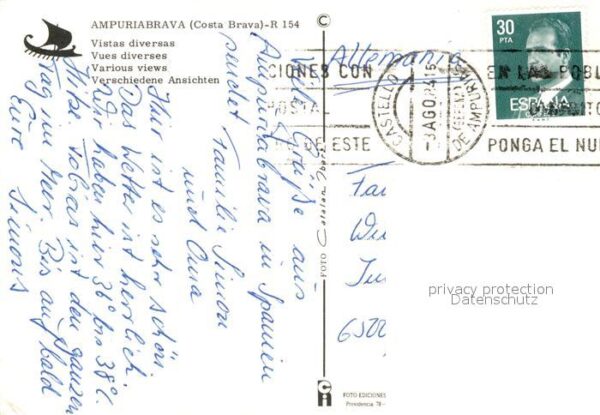 AMPURIABRAVA (Costa Brava)-R 154
Vistas diversas
Vues diverses
Various views
Verschiedene Ansichten
Viele Grüße aus
Ampuriabrava in Spanien
sendet Familie Simon
und Oma
Hier ist es sehr schön
Das Wetter ist herrlich
wir haben hier 36° bis 38°C.
Hitze. Tobias ist den ganzen
Tag im Meer. Bis auf bald
Eure Simons
Allemania
30
PTA
ESPAÑA
CIONES CON
POSTAL
DE ESTE
CASTELLO
DE AMPURIAS
AGO
EN LAS POBL
PONGA EL NU
Fa
Wu
6522
FOTO
FOTO EDICIONES
Providencia 78-
privacy protection
Datenschutz